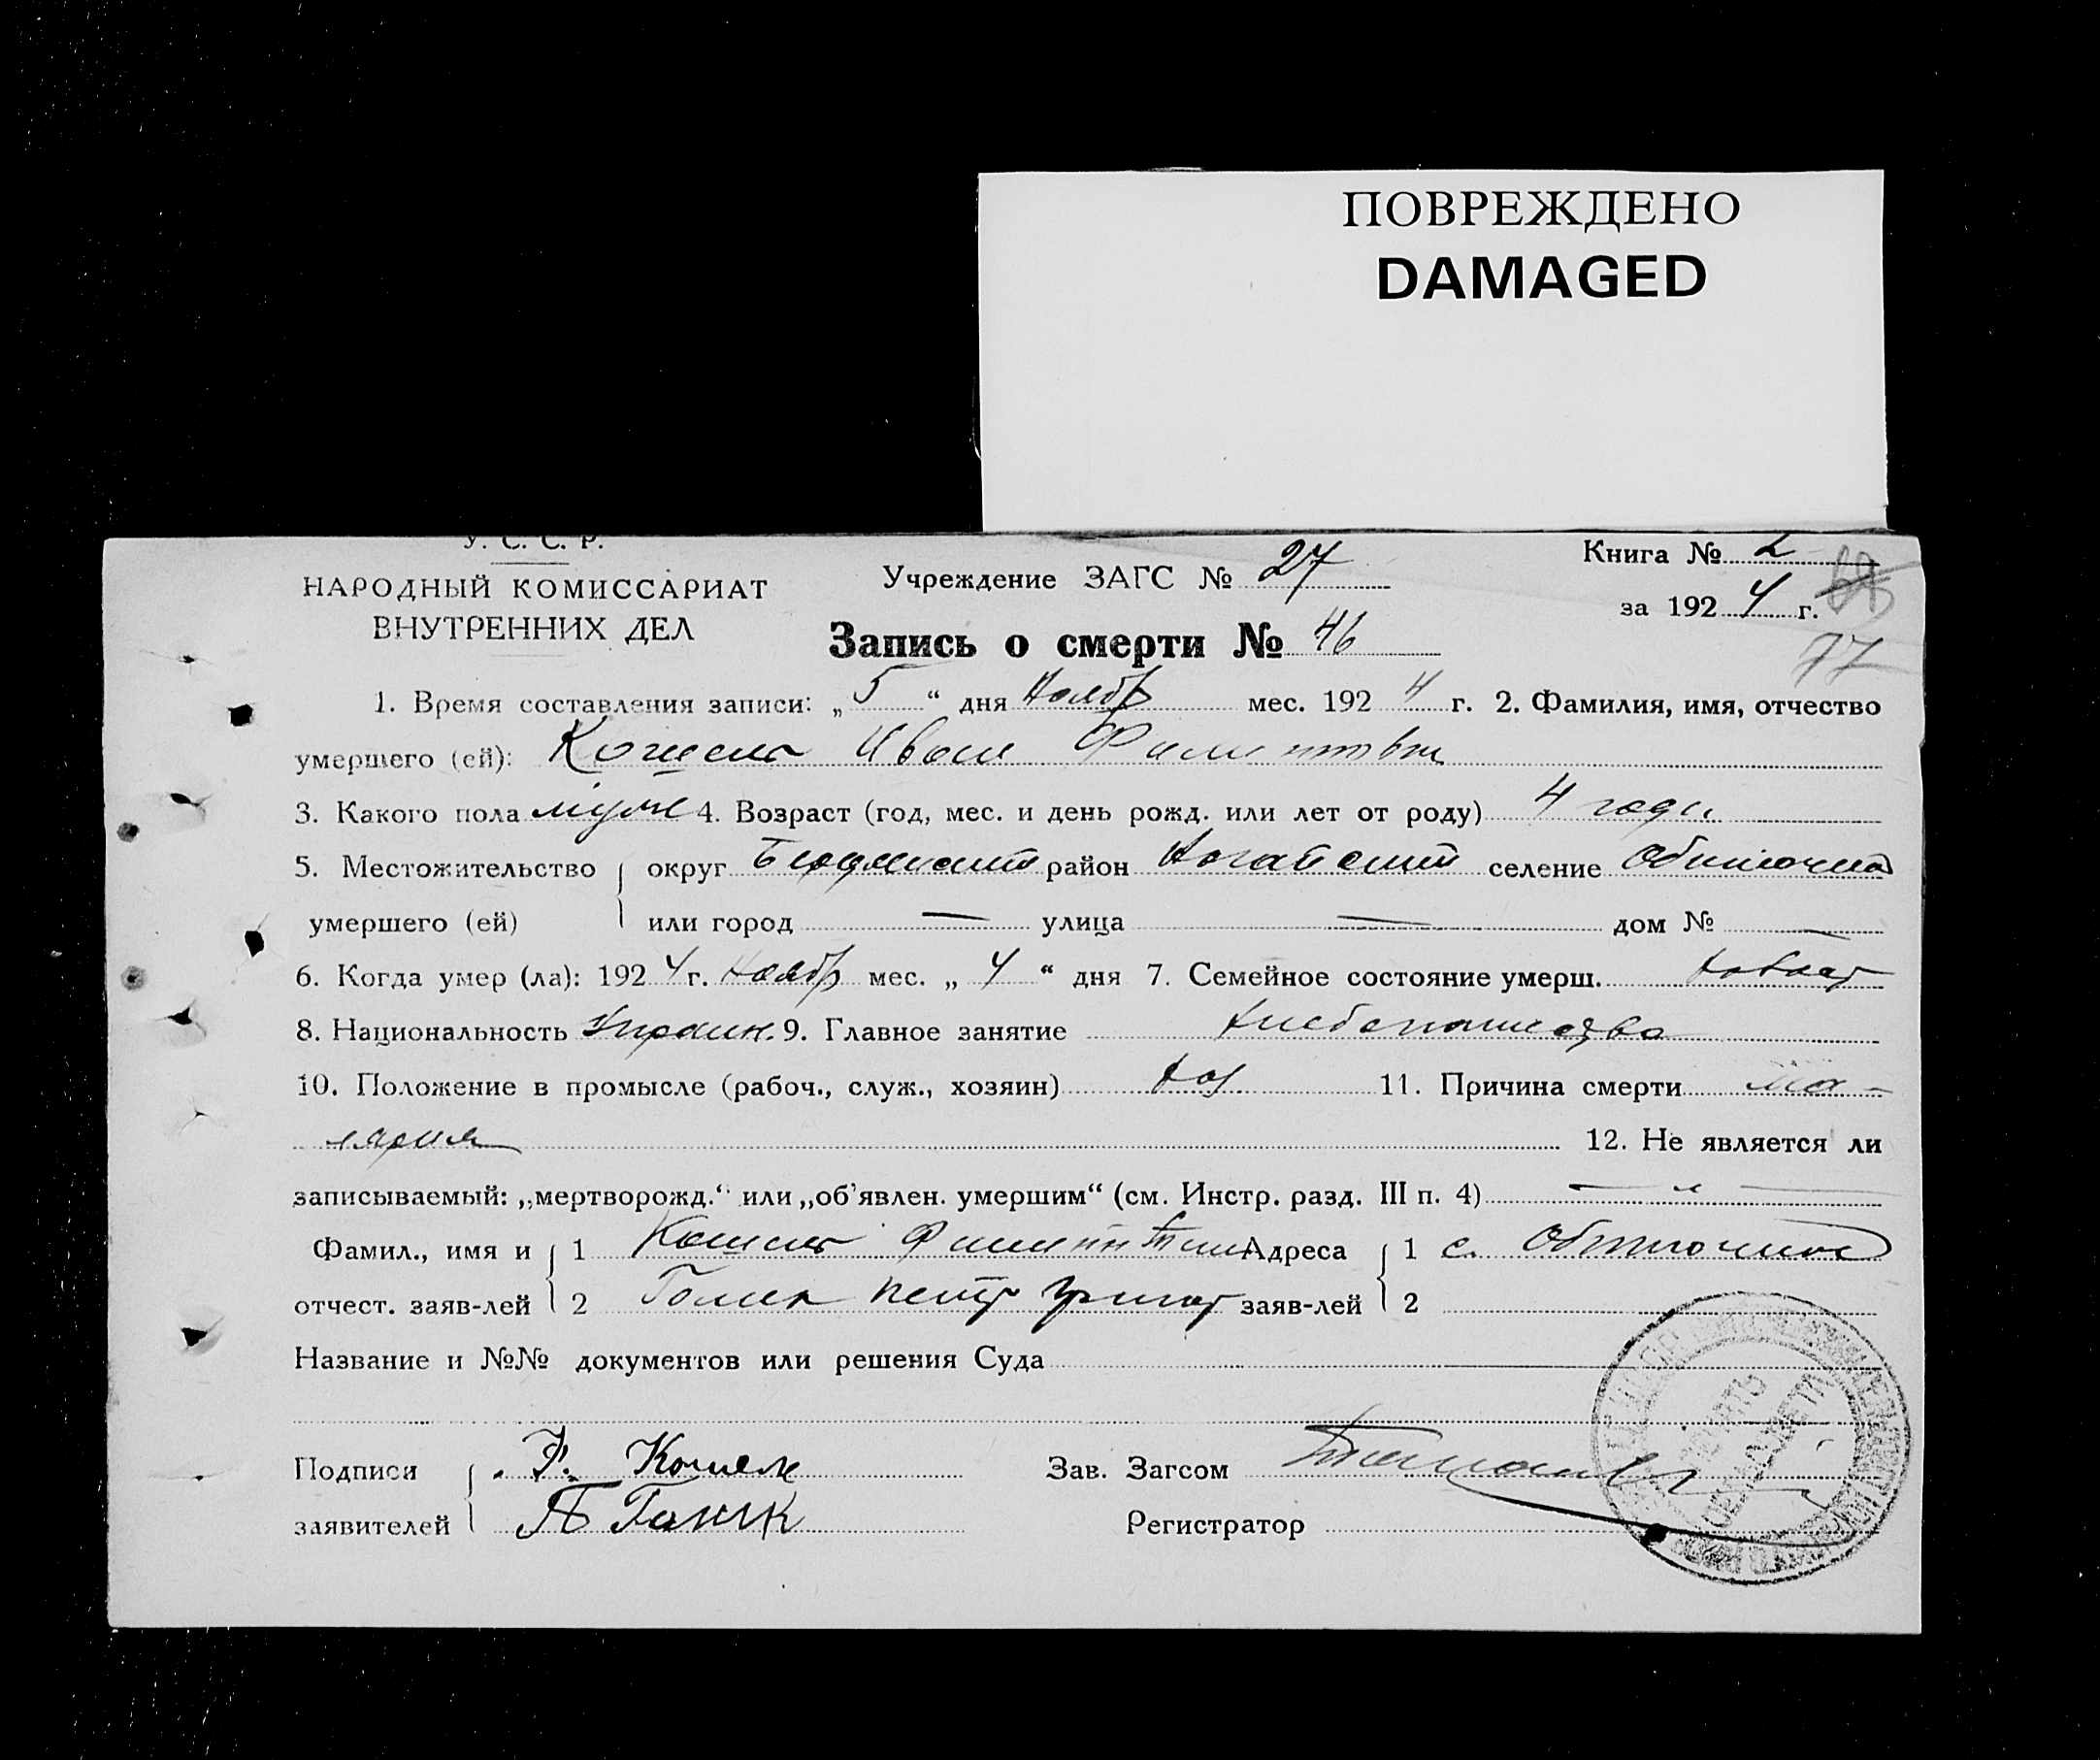 ПОВРЕЖДЕНО
DAMAGED
У. С. С. Р.
НАРОДНЫЙ КОМИССАРИАТ
ВНУТРЕННИХ ДЕЛ
Учреждение ЗАГС № 27
Книга № 2
за 1924 г.
77
Запись о смерти № 46
1. Время составления записи: „5“ дня Ноябр мес. 1924 г. 2. Фамилия, имя, отчество
умершего (ей): Иван
3. Какого пола муж 4. Возраст (год, мес. и день рожд. или лет от роду) 4 года
5. Местожительство округ район Ногайский селение Обиточная
умершего (ей) или город — улица — дом № —
6. Когда умер (ла): 1924 г. Ноябр мес. „4“ дня 7. Семейное состояние умерш.
8. Национальность Украин. 9. Главное занятие хлебопашество
10. Положение в промысле (рабоч., служ., хозяин) хоз 11. Причина смерти ма-
лярия 12. Не является ли
записываемый: „мертворожд.“ или „об'явлен. умершим“ (см. Инстр. разд. III п. 4) — „ —
Фамил., имя и 1 Филипп Адреса 1 с. Обиточная
отчест. заяв-лей 2 Петр Григор заяв-лей 2
Название и №№ документов или решения Суда
Подписи Зав. Загсом
заявителей Регистратор